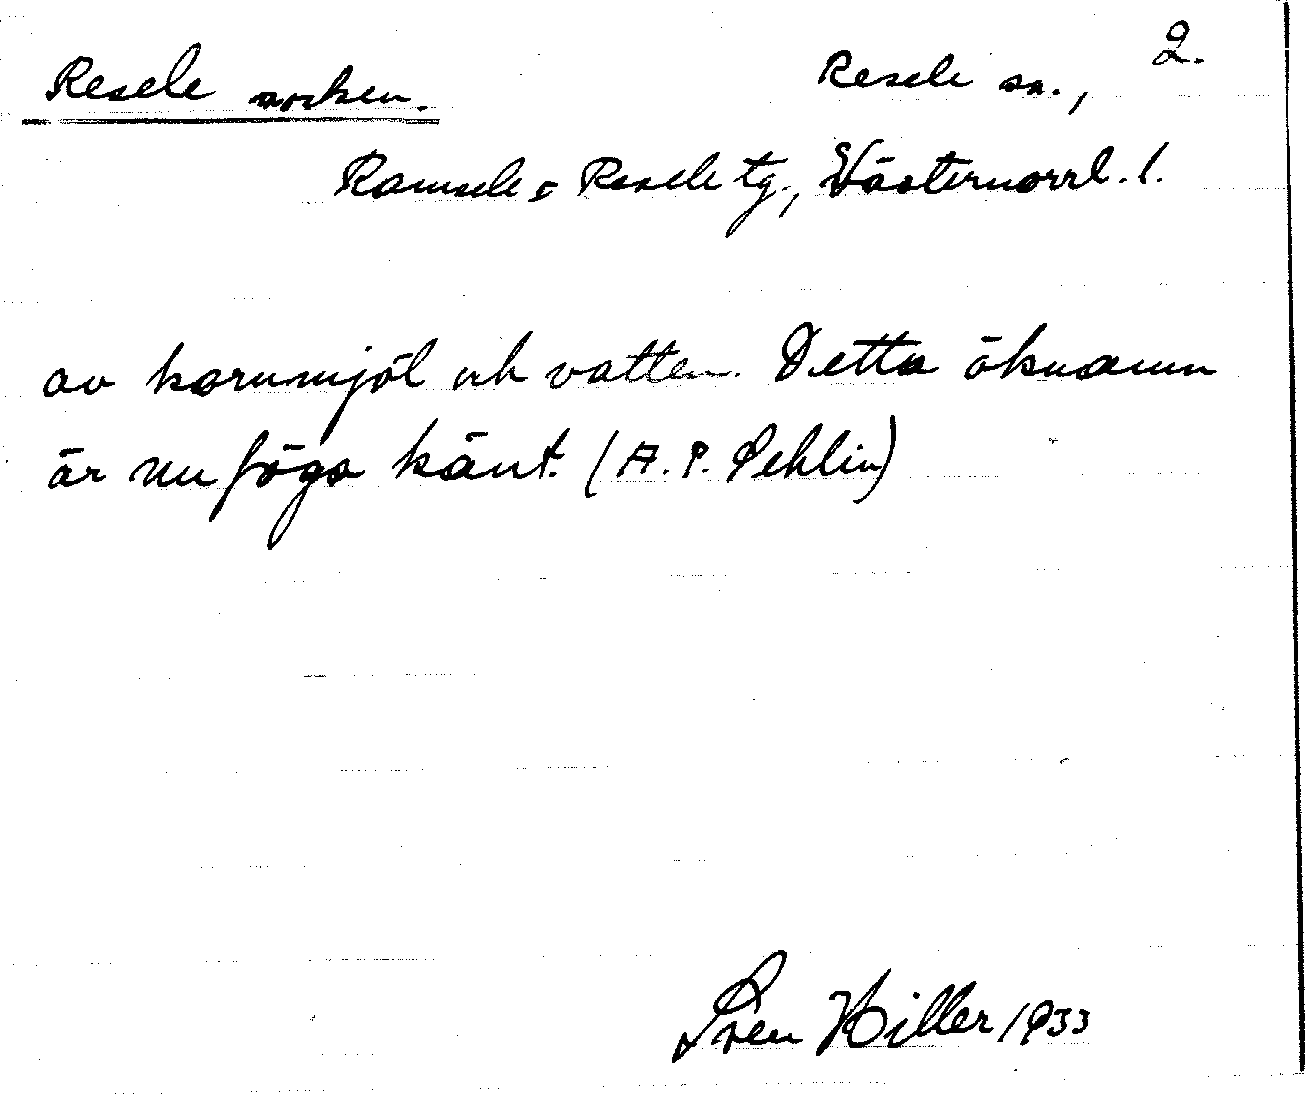 2.
Resele socken. Resele sn.,
Ramsele o Resele tg., Västernorrl. l.
av kornmjöl och vatten. Detta öknamn
är nu föga känt. (A. P. Sehlin)
Sven Hiller 1933